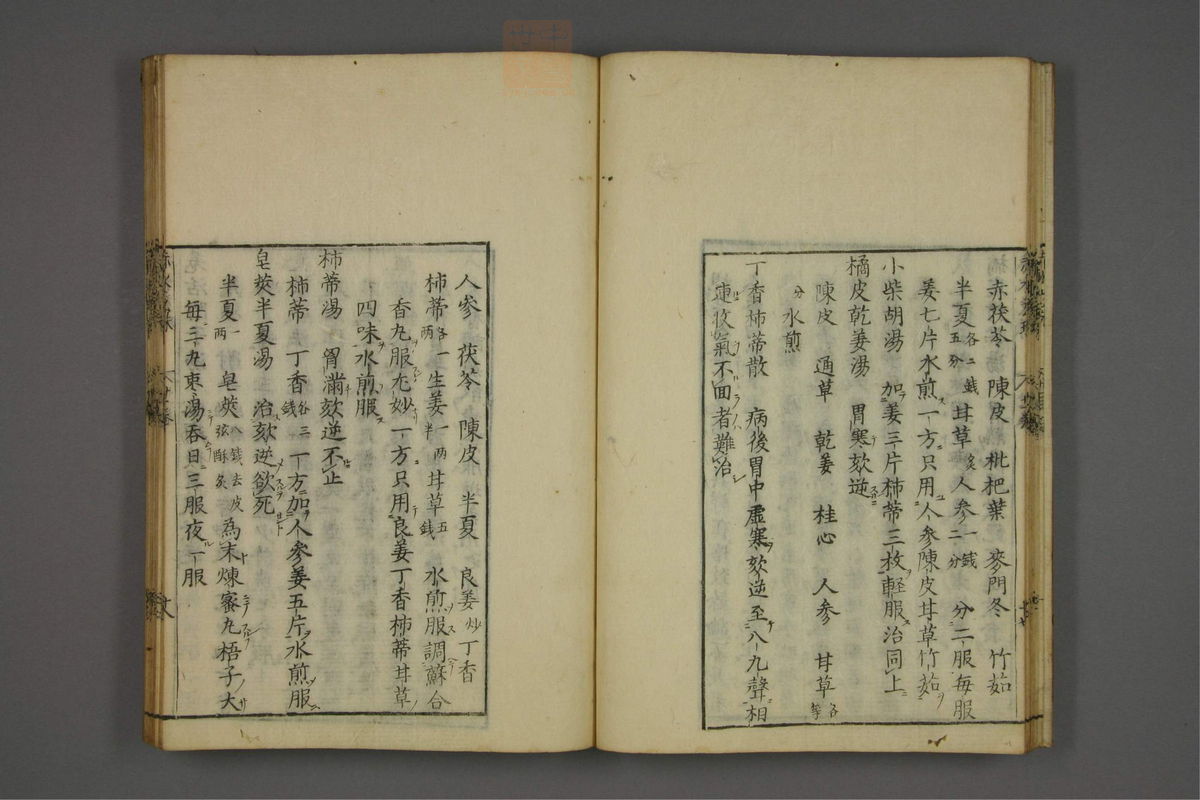 赤茯苓湯 陳皮 枇杷葉 麥門冬 竹茹
半夏各二錢五分 甘草炙 人参一錢二分 分二服每服
姜七片水煎一方只用人参陳皮甘草竹茹
小柴胡湯 加姜三片柿蒂三枚軽服治同上
橘皮乾姜湯 胃寒欬逆
陳皮 通草 乾姜 桂心 人参 甘草各等
分 水煎
丁香柿蒂散 病後胃中虚寒欬逆至八九聲相
連收氣不回者難治
人參 茯苓 陳皮 半夏 良姜炒 丁香
柿蒂各一両 生姜一両半 甘草五錢 水煎服調蘇合
香丸服尤妙一方只用良姜丁香柿蒂甘草
四味水煎服
柿蒂湯 胃滿欬逆不止
柿蒂 丁香各二錢 一方加人參姜五片水煎服
皂莢半夏湯 治欬逆欲死
半夏一両 皂莢八錢去皮弦酥炙 為末煉蜜丸梧子大
每三丸棗湯吞日三服夜一服